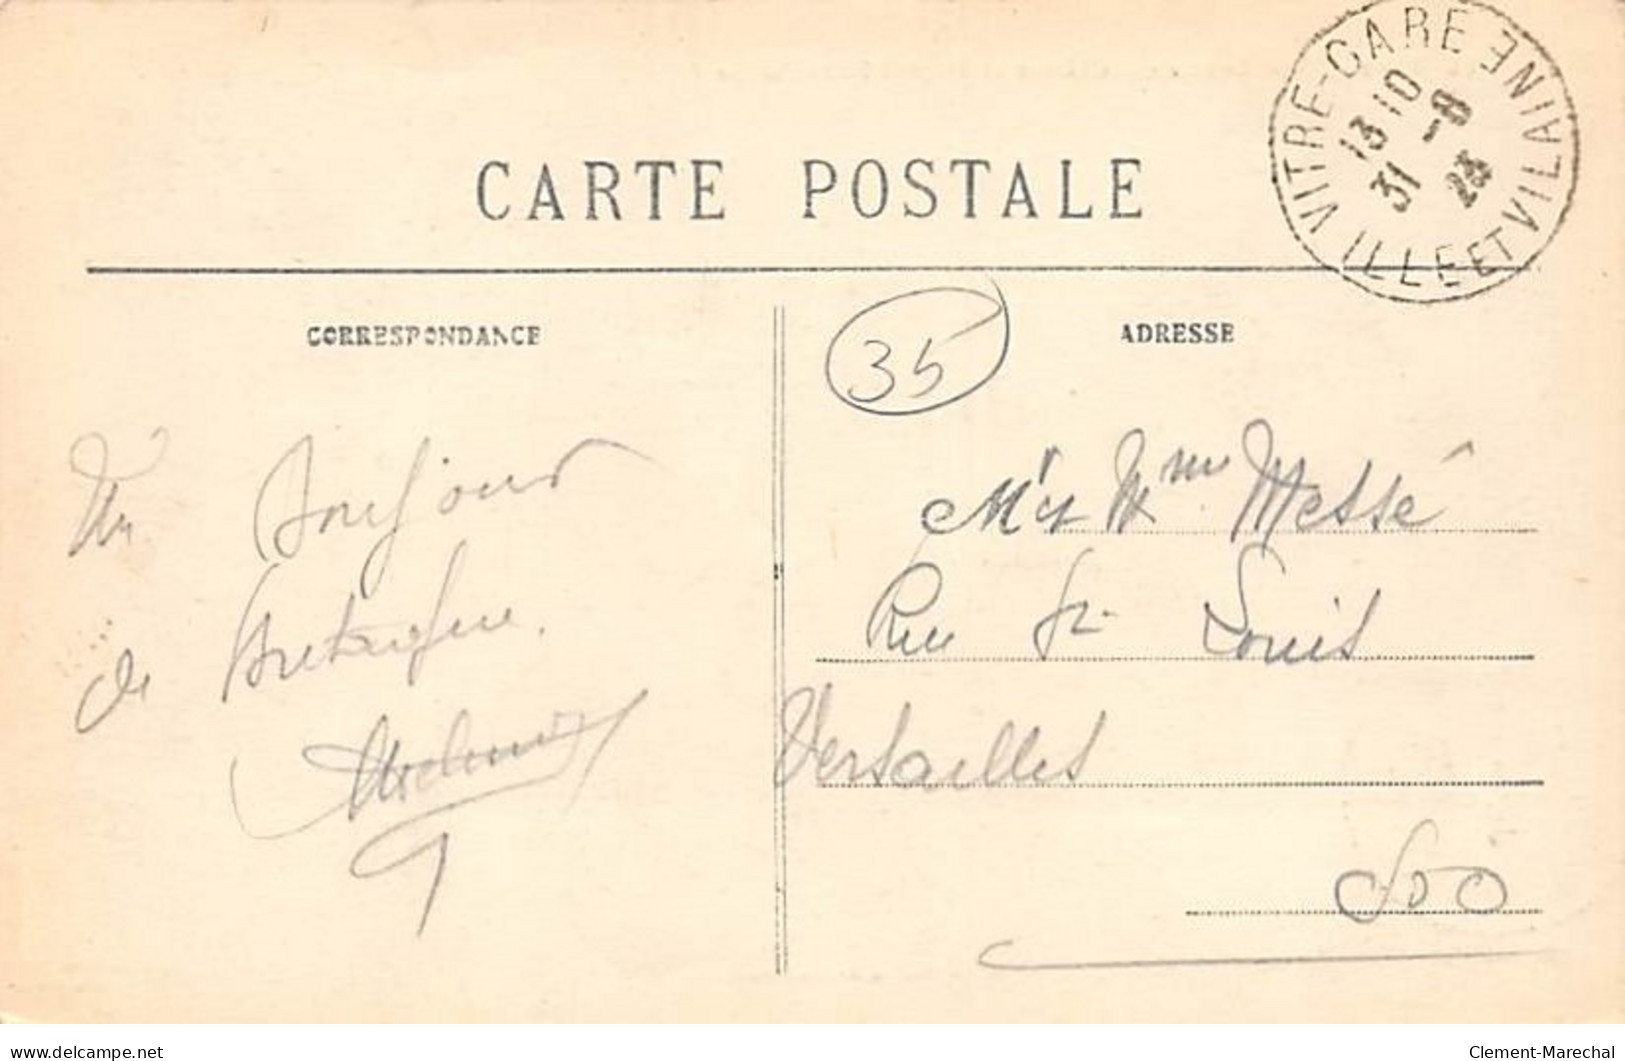 CARTE POSTALE
VITRE-GARE ILLE ET VILAINE
13 10
31 -8
23
CORRESPONDANCE
ADRESSE
35
Un Bonjour
de Bretagne.
Mr et Mme Messé
Rue St Louis
Versailles
S & O
delcampe.net
Clement-Marechal